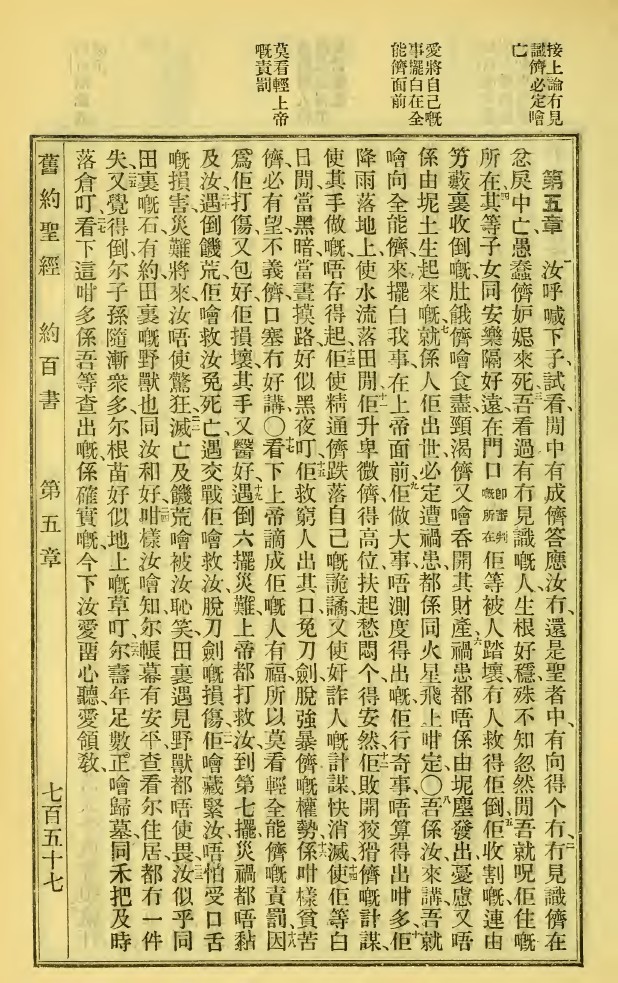 接上論冇見
識儕必定噲
亡
愛將自己嘅
事擺白在全
能儕面前
莫看輕上帝
嘅責罰
第五章 汝呼喊下子、試看閒中有成儕答應汝冇、還是聖者中、有向得个冇、冇見識儕在
忿戾中亡、愚蠢儕妒𡞾來死、吾看過有冇見識嘅人、生根好穩、殊不知忽然閒、吾就呪佢住嘅
所在、其等子女、同安樂隔好遠、在門口 卽審判嘅所在 佢等被人踏壞、冇人救得佢倒、佢收割嘅、連由
竻藪裏收倒嘅、肚餓儕噲食盡、頸渴儕又噲吞開其財產、禍患都唔係由坭塵發出、憂慮又唔
係由坭土生起來嘅、就係人佢出世、必定遭禍患、都係同火星飛上咁定〇吾係汝來講、吾就
噲向全能儕、來擺白我事、在上帝面前、佢做大事、唔測度得出嘅、佢行奇事、唔算得出咁多、佢
降雨落地上、使水流落田閒、佢升卑微儕得高位、扶起愁悶个得安然、佢敗開狡猾儕嘅計謀、
使其手做嘅唔存得起、佢使精通儕、跌落自己嘅詭譎、又使奸詐人嘅計謀、快消滅、使佢等白
日閒當黑暗、當晝摸路、好似黑夜叮、佢救窮人出其口、免刀劍、脫強暴儕嘅權勢、係咁樣貧苦
儕必有望、不義儕口塞冇好講〇看下上帝謫成佢嘅人有福、所以莫看輕全能儕嘅責罰、因
爲佢打傷、又包好、佢損壞、其手又醫好、遇倒六擺災難、上帝都打救汝、到第七擺、災禍都唔黏
及汝、遇倒饑荒、佢噲救汝免死亡、遇交戰、佢噲救汝脫刀劍嘅損傷、佢噲藏緊汝、唔怕受口舌
嘅損害、災難將來、汝唔使驚狂、滅亡及饑荒、噲被汝恥笑、田裏遇見野獸、都唔使畏、汝似乎同
田裏嘅石有約、田裏嘅野獸、也同汝和好、咁樣汝噲知尔帳幕有安平、查看尔住居、都冇一件
失、又覺得倒尔子孫隨漸衆多、尔根苗好似地上嘅草叮、尔壽年足數、正噲歸墓、同禾把及時
落倉叮、看下這咁多、係吾等查出嘅、係確實嘅、今下汝愛畱心聽、愛領敎、
舊約聖經 約百書 第五章 七百五十七